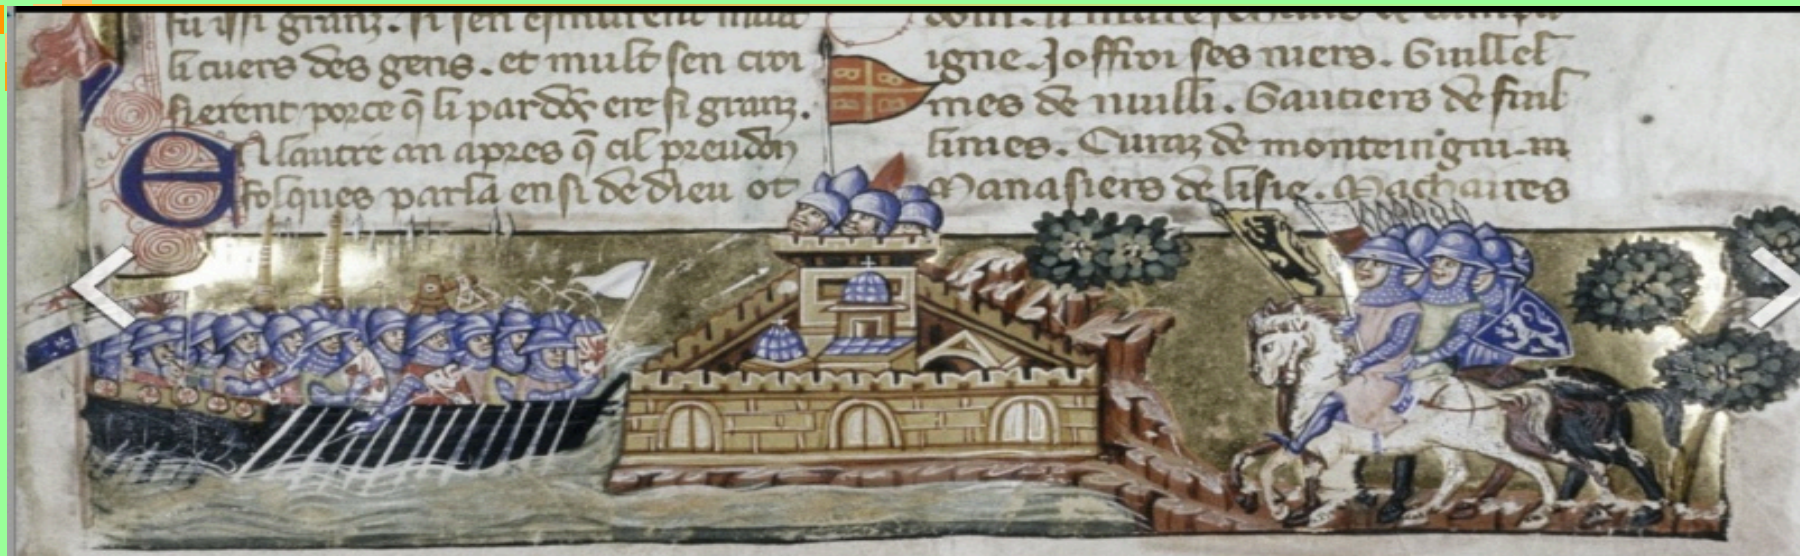 fu issi granz. si sen esmurent mult
li cuers des gens. et mult sen croi
sierent porce q̃ li pardõs ere si granz.
En lautre an apres q̃ cil preudõ
folques parla ensi de dieu ot
igne. Joffroi ses niers. Guillel
mes de nuilli. Gautiers de fuil
lines. Euraz de monteingni. m
Manasiers de lisle. Machaires